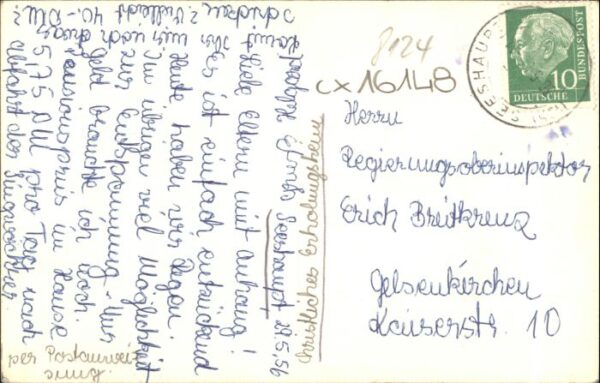 Seeshaupt 28.5.56
Liebe Eltern mit Anhang!
Es ist einfach entzückend
Heute haben wir Regen.
Im übrigen viel Möglichkeit
zur Entspannung. Nur
Geld brauchte ich noch.
Pensionspreis im Hause
5,75 DM pro Tag nach
Abfahrt des
Könnt Ihr mir noch etwas
schicken? Vielleicht 40.- DM?
per Postanweis
Christliches Erholungsheim
8124
CX16148
SEESHAUPT
10
DEUTSCHE
BUNDESPOST
Herrn
Regierungsoberinspektor
Erich Breitkreuz
Gelsenkirchen
Kaiserstr. 10